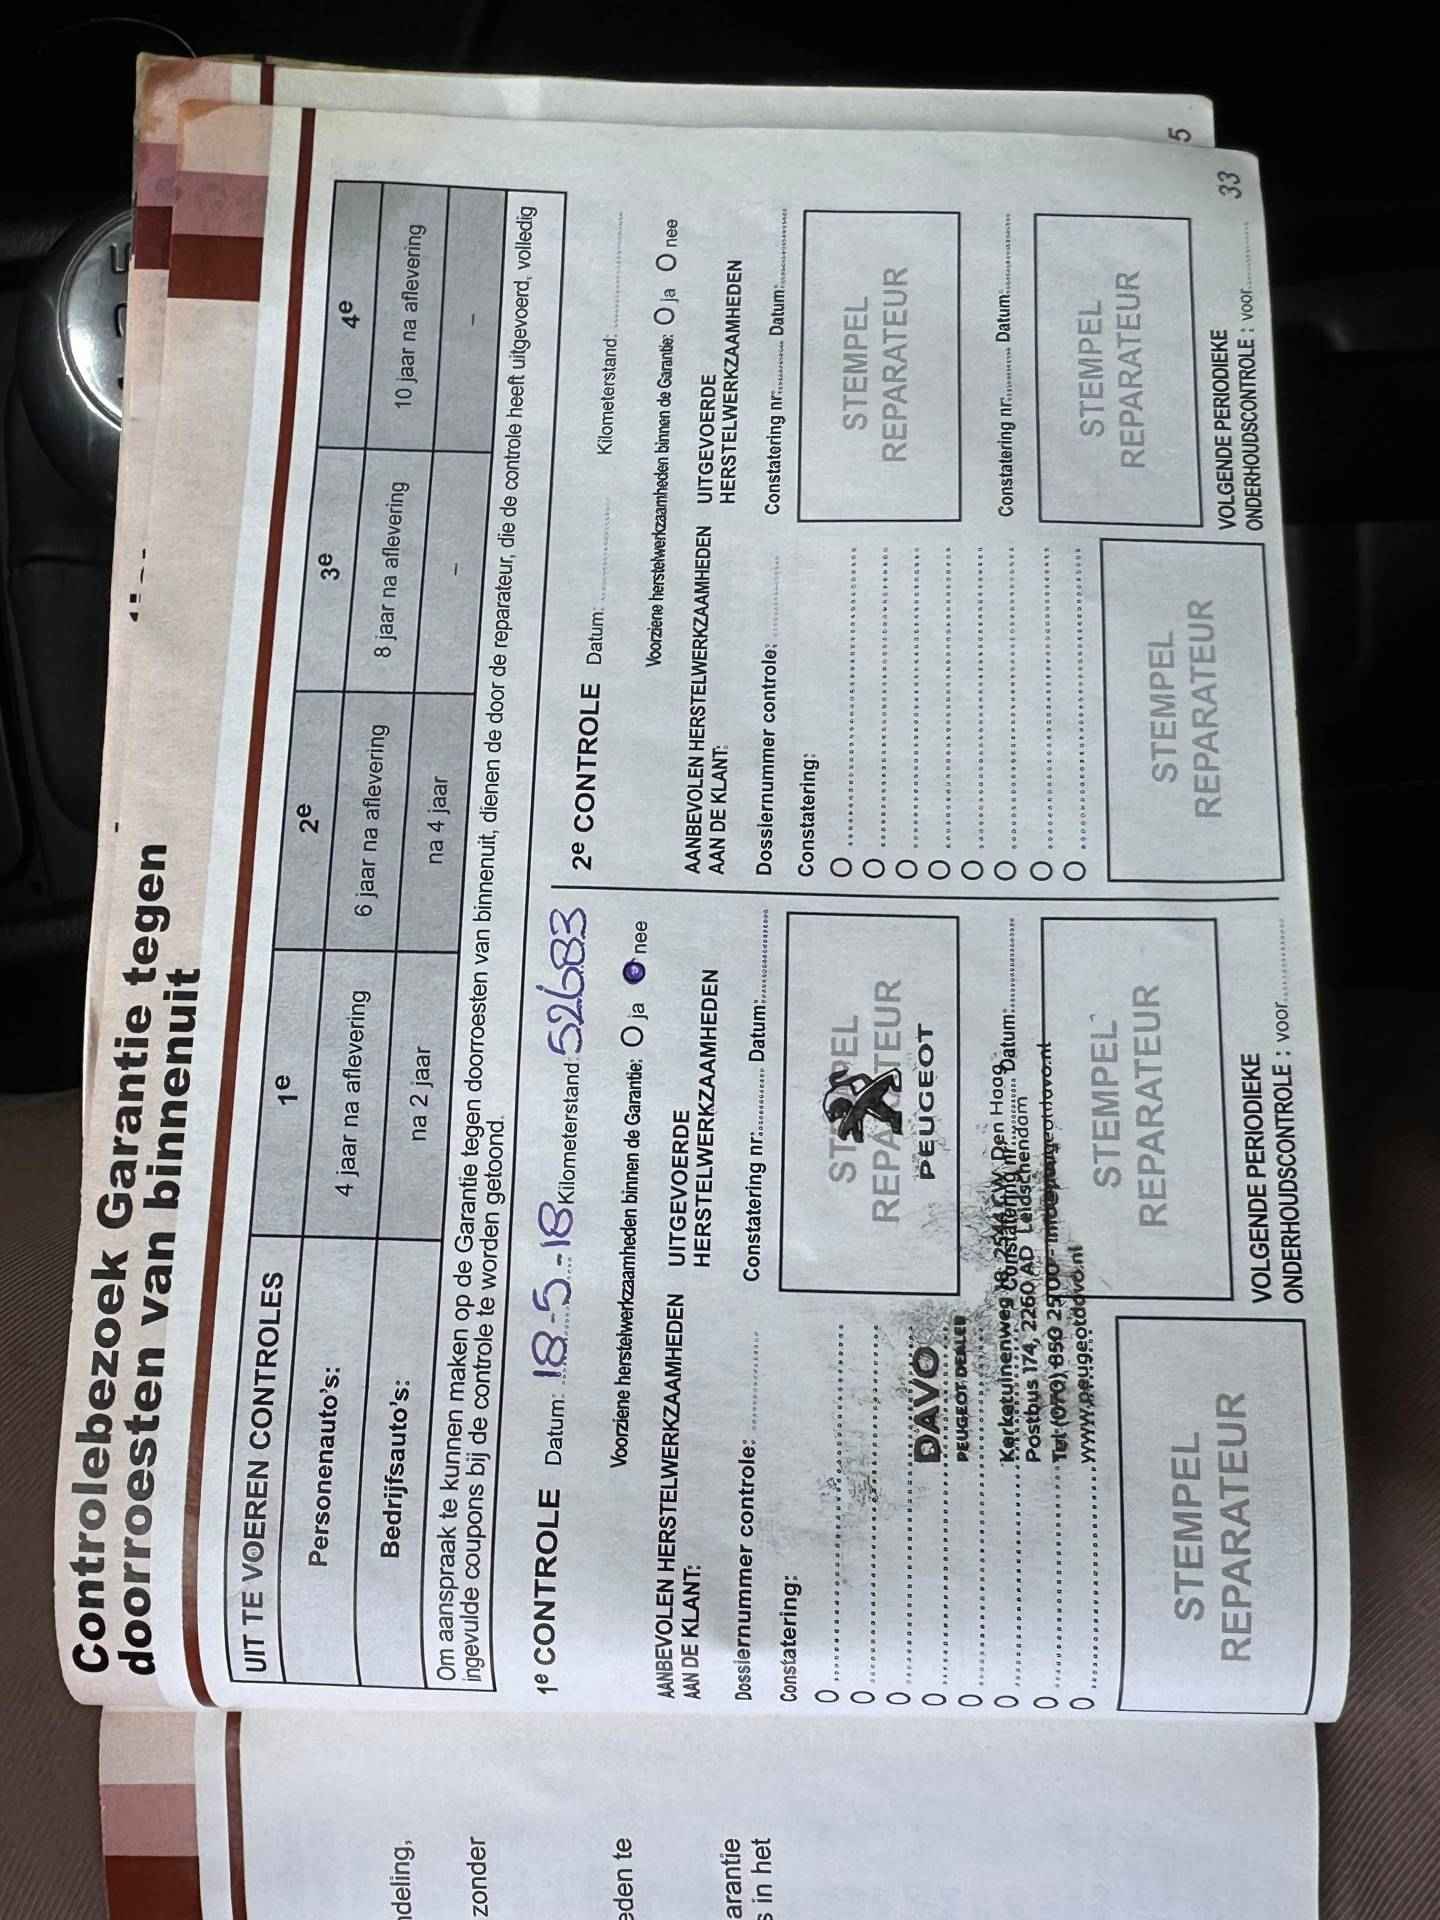 Controlebezoek Garantie tegen
doorroesten van binnenuit
UIT TE VOEREN CONTROLES
1e 2e 3e 4e
Personenauto's: 4 jaar na aflevering 6 jaar na aflevering 8 jaar na aflevering 10 jaar na aflevering
Bedrijfsauto's: na 2 jaar na 4 jaar – –
Om aanspraak te kunnen maken op de Garantie tegen doorroesten van binnenuit, dienen de door de reparateur, die de controle heeft uitgevoerd, volledig
ingevulde coupons bij de controle te worden getoond.
1e CONTROLE Datum: 18-5-18 Kilometerstand: 52683
Voorziene herstelwerkzaamheden binnen de Garantie: O ja O nee
AANBEVOLEN HERSTELWERKZAAMHEDEN
AAN DE KLANT:
UITGEVOERDE
HERSTELWERKZAAMHEDEN
Dossiernummer controle:
Constatering nr. Datum:
Constatering:
STEMPEL
REPARATEUR
PEUGEOT
DAVO
PEUGEOT DEALER
Kerketuinenweg 18, 2544 CW Den Haag
Postbus 174, 2260 AD Leidschendam
Tel (070) 850 2500 - info@peugeotdavo.nl
www.peugeotdavo.nl
Constatering nr. Datum:
STEMPEL
REPARATEUR
STEMPEL
REPARATEUR
VOLGENDE PERIODIEKE
ONDERHOUDSCONTROLE : voor
2e CONTROLE Datum: Kilometerstand:
Voorziene herstelwerkzaamheden binnen de Garantie: O ja O nee
AANBEVOLEN HERSTELWERKZAAMHEDEN
AAN DE KLANT:
UITGEVOERDE
HERSTELWERKZAAMHEDEN
Dossiernummer controle:
Constatering nr. Datum:
Constatering:
STEMPEL
REPARATEUR
Constatering nr. Datum:
STEMPEL
REPARATEUR
STEMPEL
REPARATEUR
VOLGENDE PERIODIEKE
ONDERHOUDSCONTROLE : voor
33
5
ndeling,
zonder
eden te
arantie
s in het